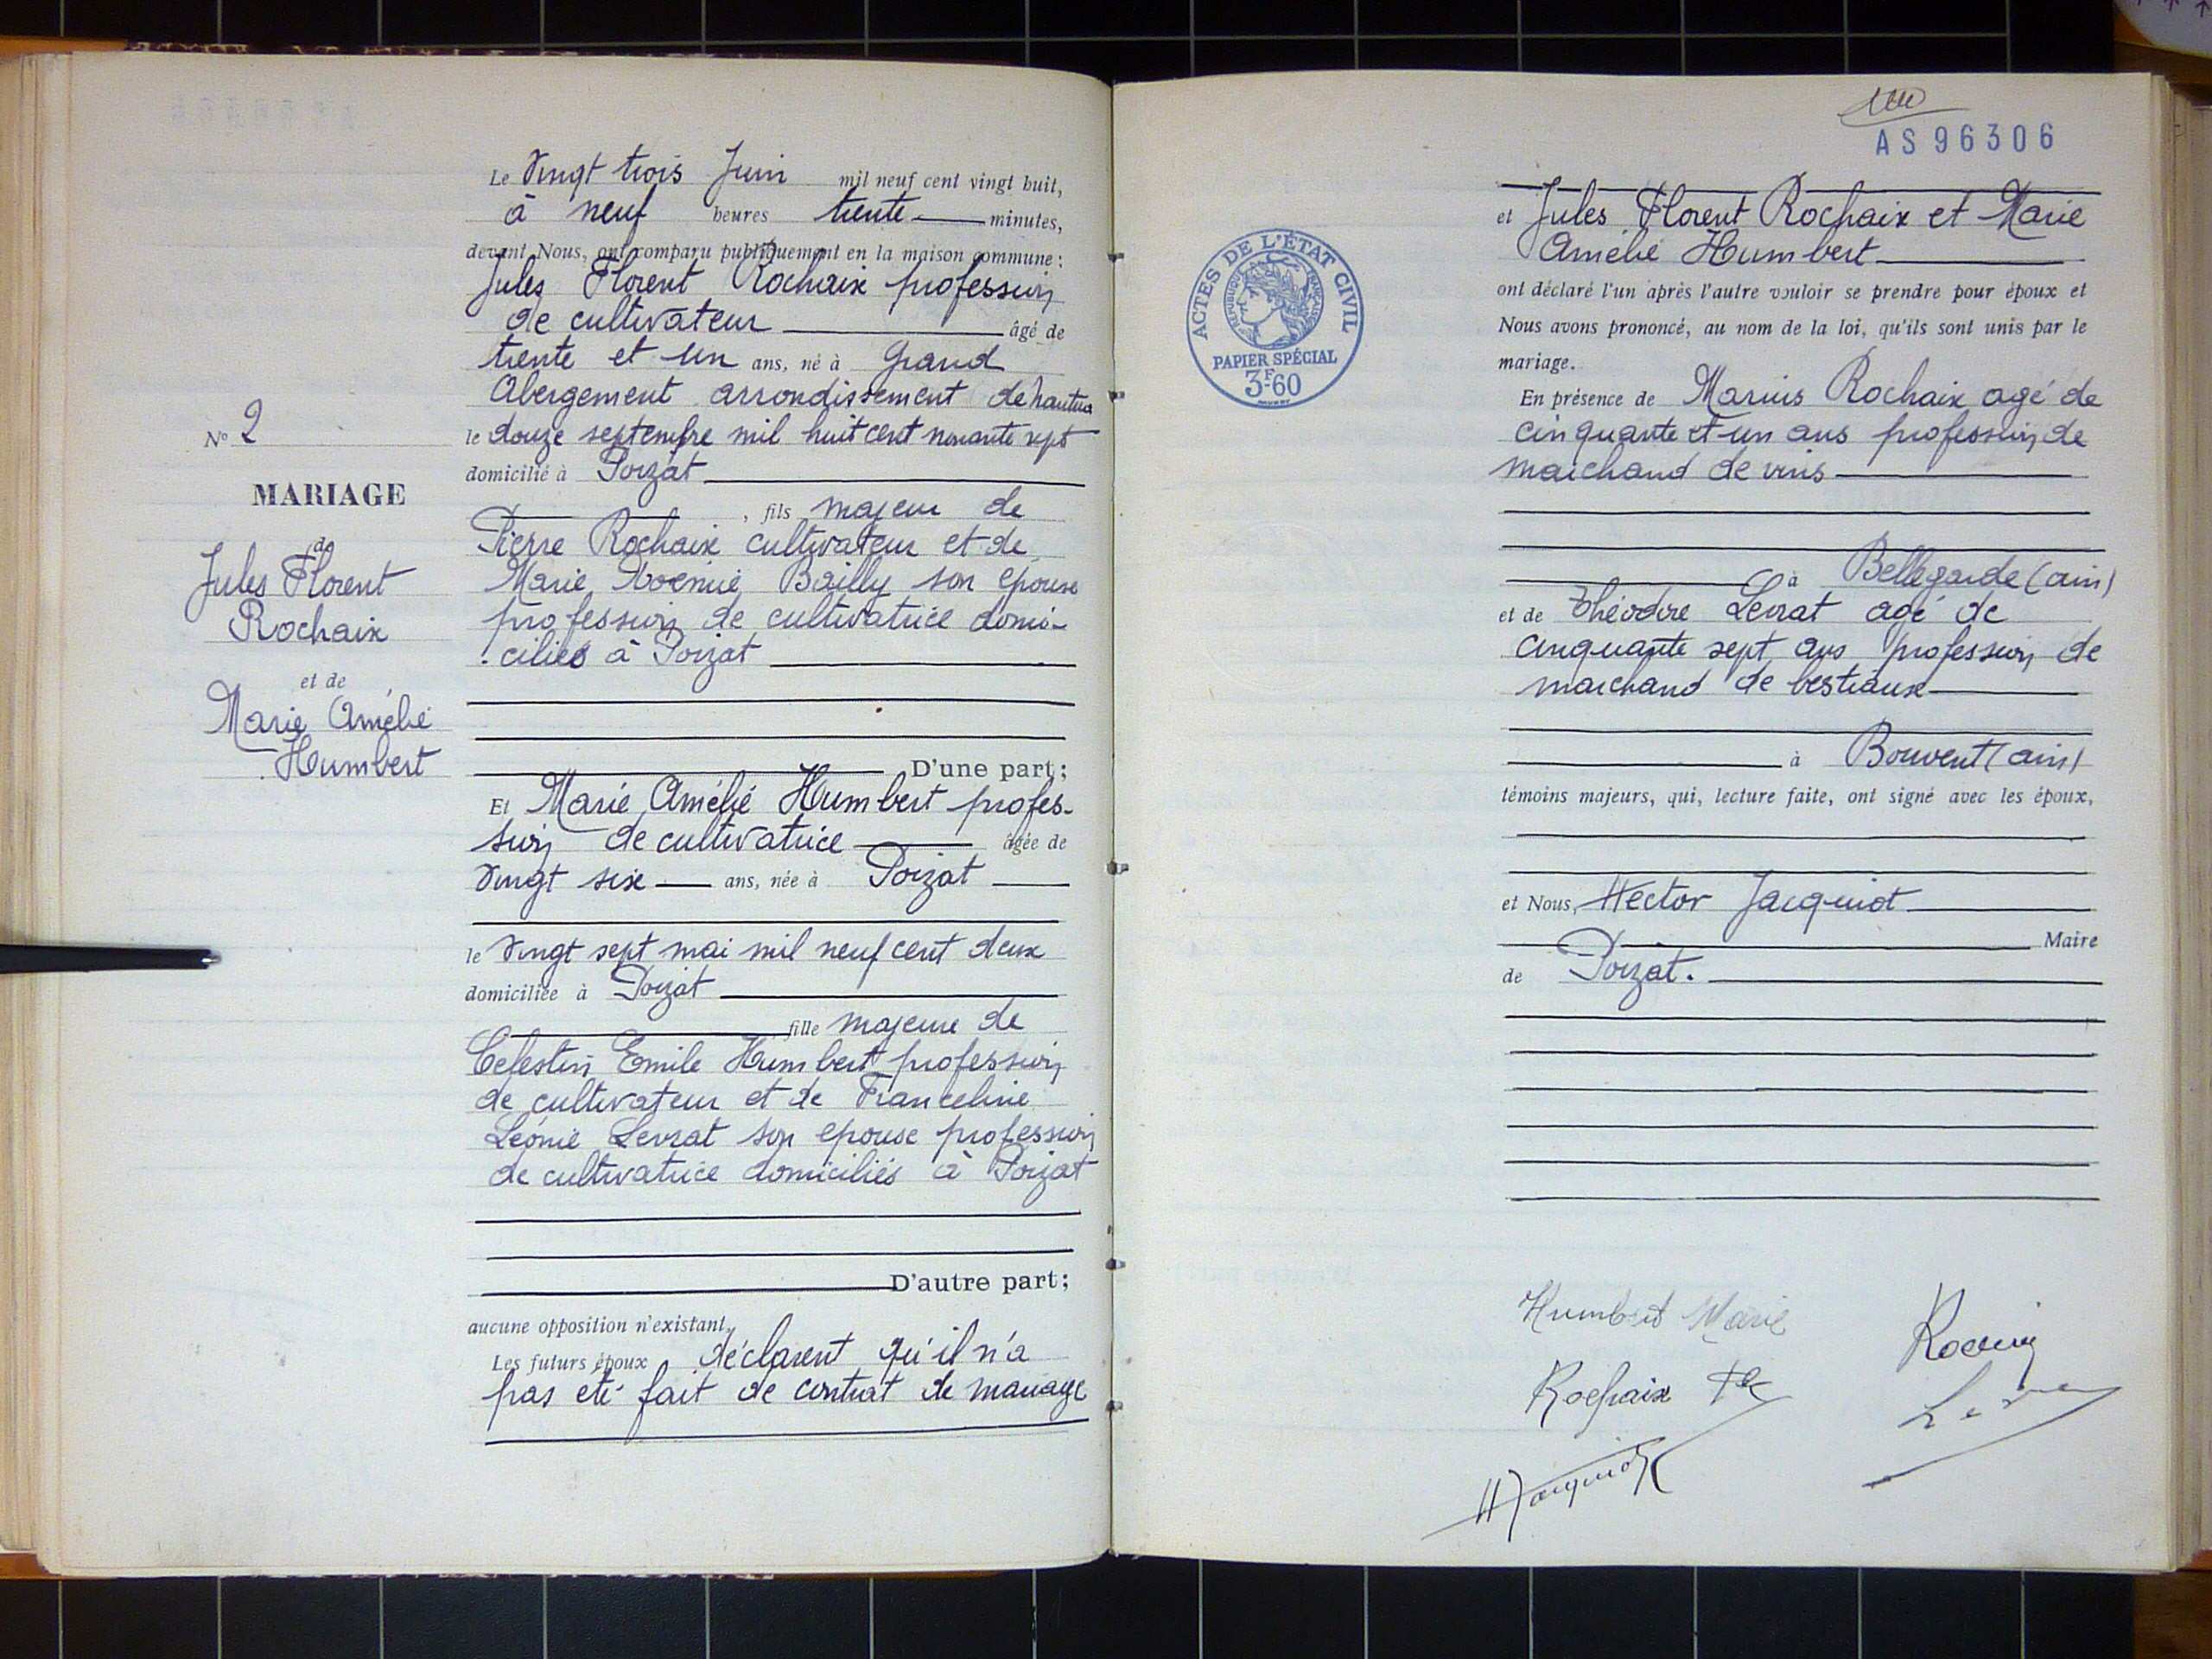 N° 2
MARIAGE
de
Jules Florent
Rochaix
et de
Marie Amélie
Humbert
Le Vingt trois Juin mil neuf cent vingt huit,
à neuf heures trente minutes,
devant Nous, ont comparu publiquement en la maison commune :
Jules Florent Rochaix profession
de cultivateur âgé de
trente et un ans, né à Grand
Abergement arrondissement de Nantua
le douze septembre mil huit cent nonante sept
domicilié à Poizat
, fils majeur de
Pierre Rochaix cultivateur et de
Marie Noémie Bailly son épouse
profession de cultivatrice domi-
ciliés à Poizat
D'une part ;
Et Marie Amélie Humbert profes-
sion de cultivatrice âgée de
Vingt six ans, née à Poizat
le Vingt sept mai mil neuf cent deux
domiciliée à Poizat
, fille majeure de
Celestin Emile Humbert profession
de cultivateur et de Franceline
Léonie Levrat son epouse profession
de cultivatrice domiciliés à Poizat
D'autre part ;
aucune opposition n'existant,
Les futurs époux déclarent qu'il n'a
pas eté fait de contrat de mariage
AS96306
et Jules Florent Rochaix et Marie
Amélie Humbert
ont déclaré l'un après l'autre vouloir se prendre pour époux et
Nous avons prononcé, au nom de la loi, qu'ils sont unis par le
mariage.
ACTES DE L'ÉTAT CIVIL
RÉPUBLIQUE FRANÇAISE
PAPIER SPÉCIAL
3F.60
En présence de Marius Rochaix agé de
cinquante et un ans profession de
marchand de vins
à Bellegarde (ain)
et de Théodore Levrat agé de
cinquante sept ans profession de
marchand de bestiaux
à Bouvent (ain)
témoins majeurs, qui, lecture faite, ont signé avec les époux,
et Nous, Hector Jacquiot
Maire
de Poizat.
Humbert Marie
Rochaix
H Jacquiot